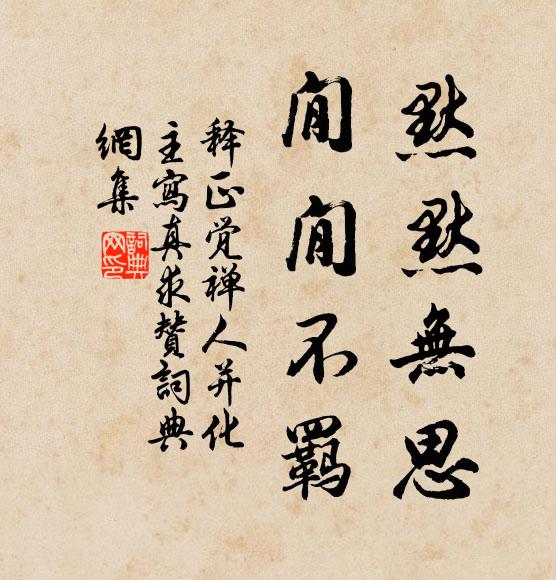 默默無思
閒閒不羈
释正觉禅人并化
主寫真求贊詞典
網集
詞典網印